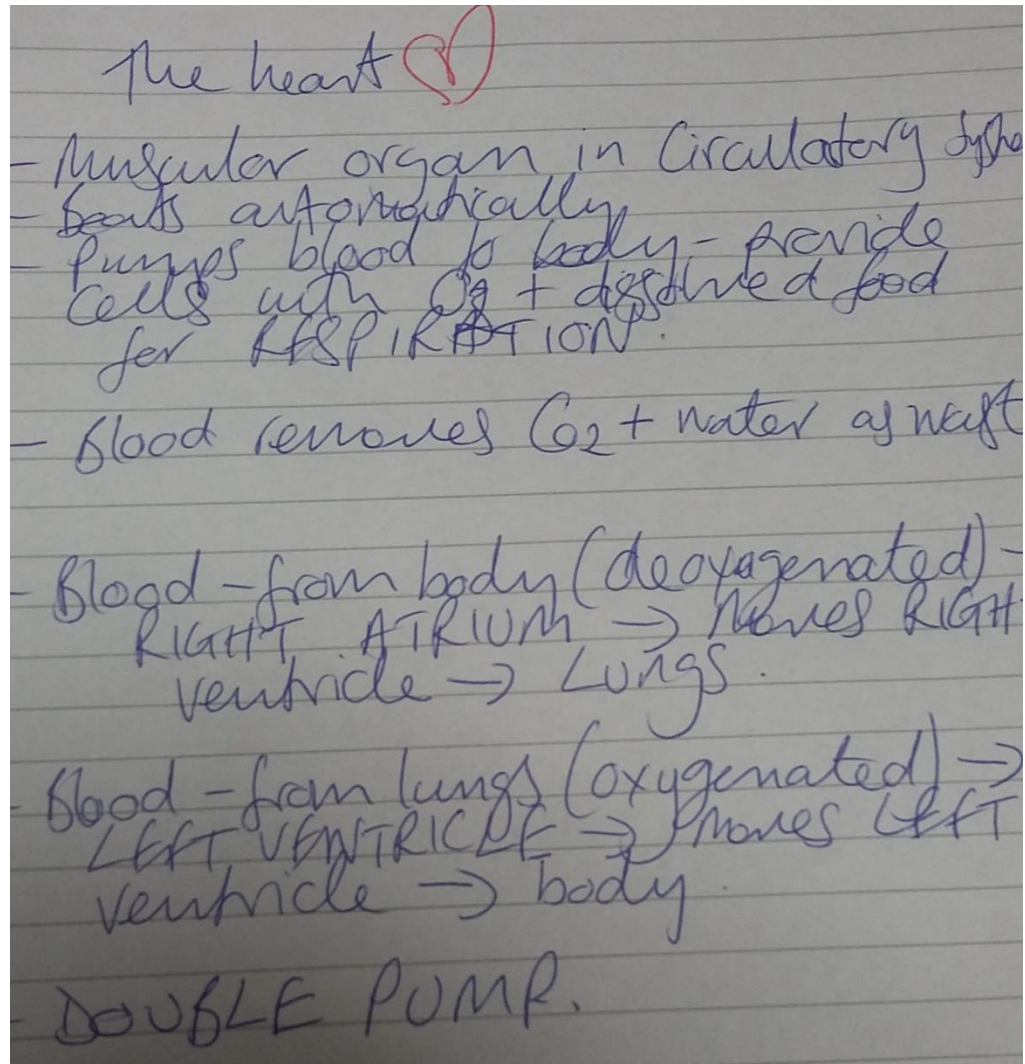 The heart
- Muscular organ in Circulatory Syste
- beats automatically
- Pumps blood to body - provide
cells with O2 + dissolved food
for RESPIRATION.
- Blood removes CO2 + water as wast
- Blood - from body (deoxagenated) -
RIGHT ATRIUM → Moves RIGH
ventricle → Lungs.
- Blood - from lungs (oxygenated) →
LEFT VENTRICLE → moves LEFT
ventricle → body.
- DOUBLE PUMP.